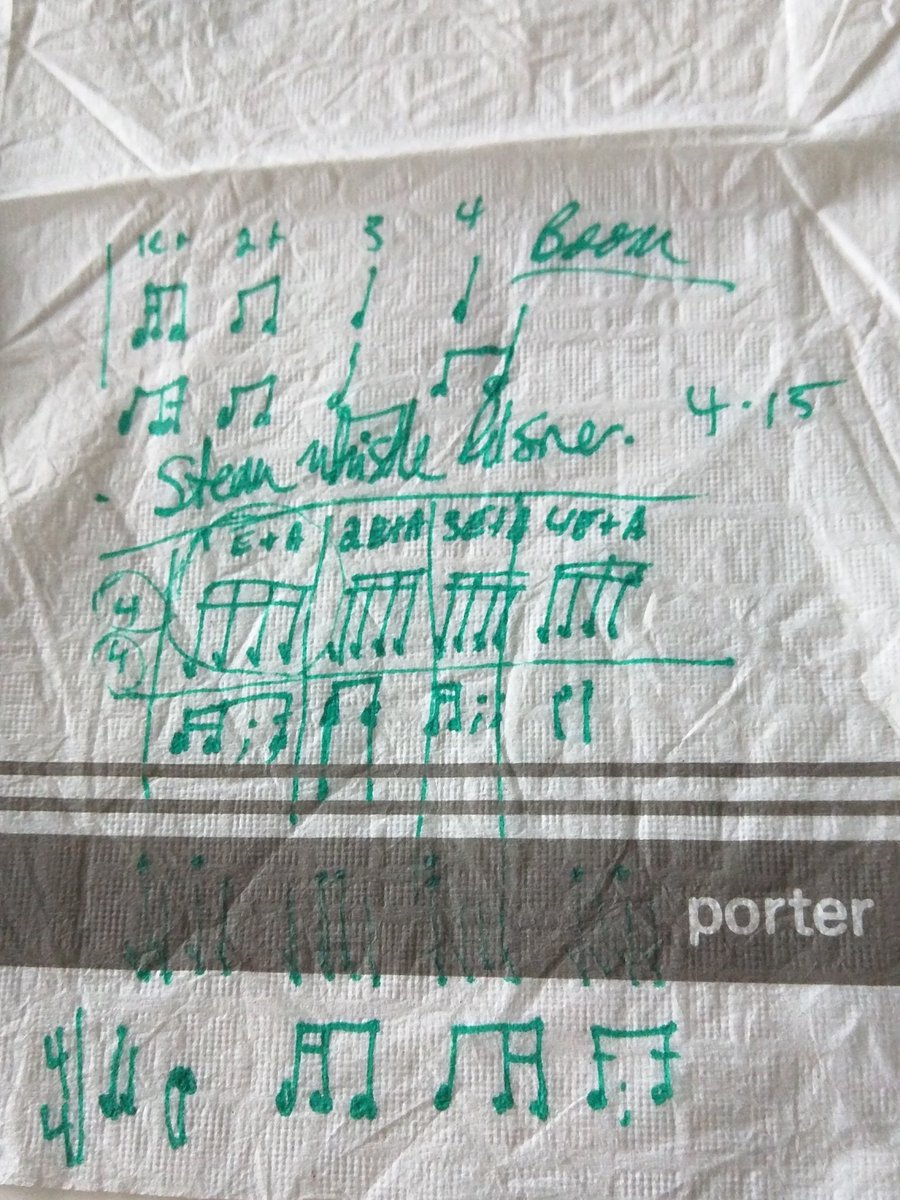 1e+ 2+ 3 4 Boom
4.15
Steam whistle
E+A 2E+A 3E+A 4E+A
4
4
porter
4
4